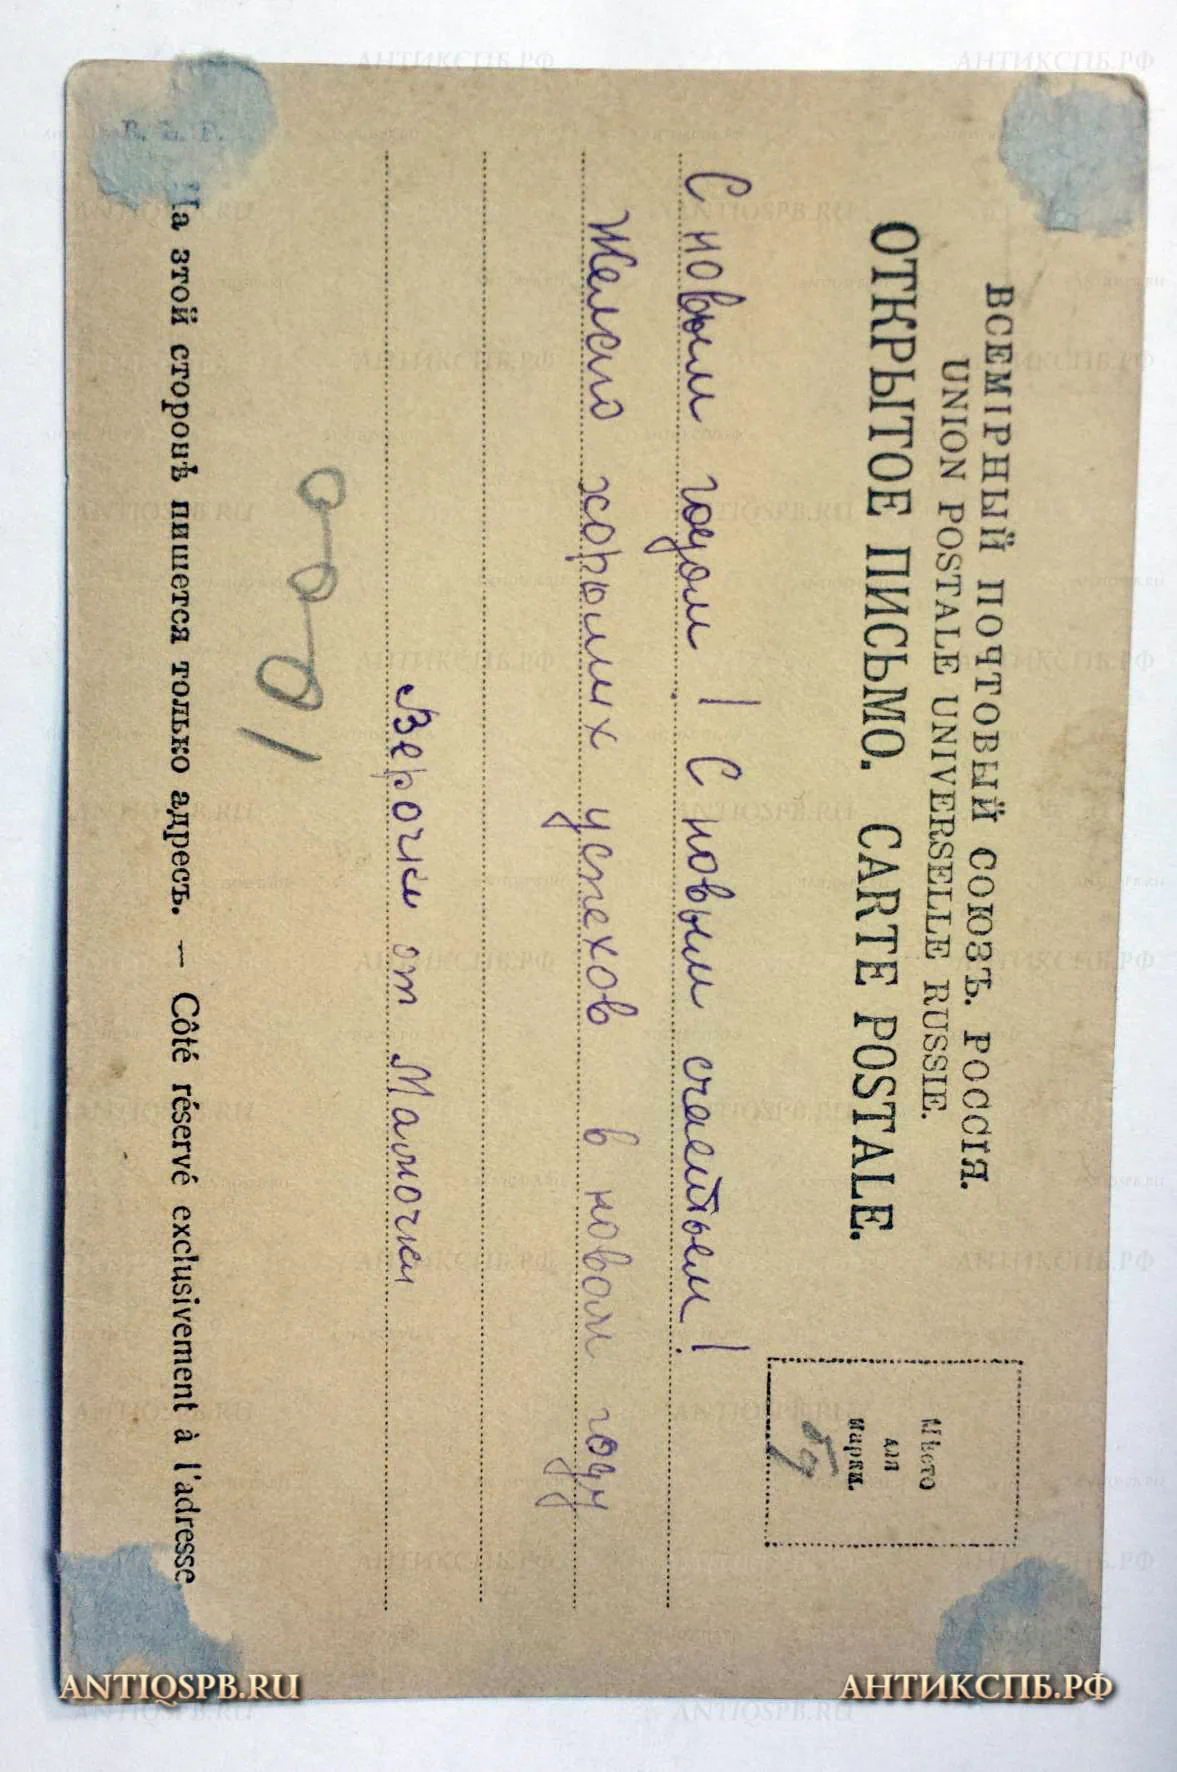 ВСЕМІРНЫЙ ПОЧТОВЫЙ СОЮЗЪ. РОССІЯ.
UNION POSTALE UNIVERSELLE RUSSIE.
ОТКРЫТОЕ ПИСЬМО. CARTE POSTALE.
Мѣсто
для
марки.
С новым годом! С новым счастьем!
Желаю хороших успехов в новом году
Верочки от Мамочки
На этой сторонѣ пишется только адресъ. — Côté réservé exclusivement à l'adresse.
ANTIQSPB.RU
АНТИКСПБ.РФ